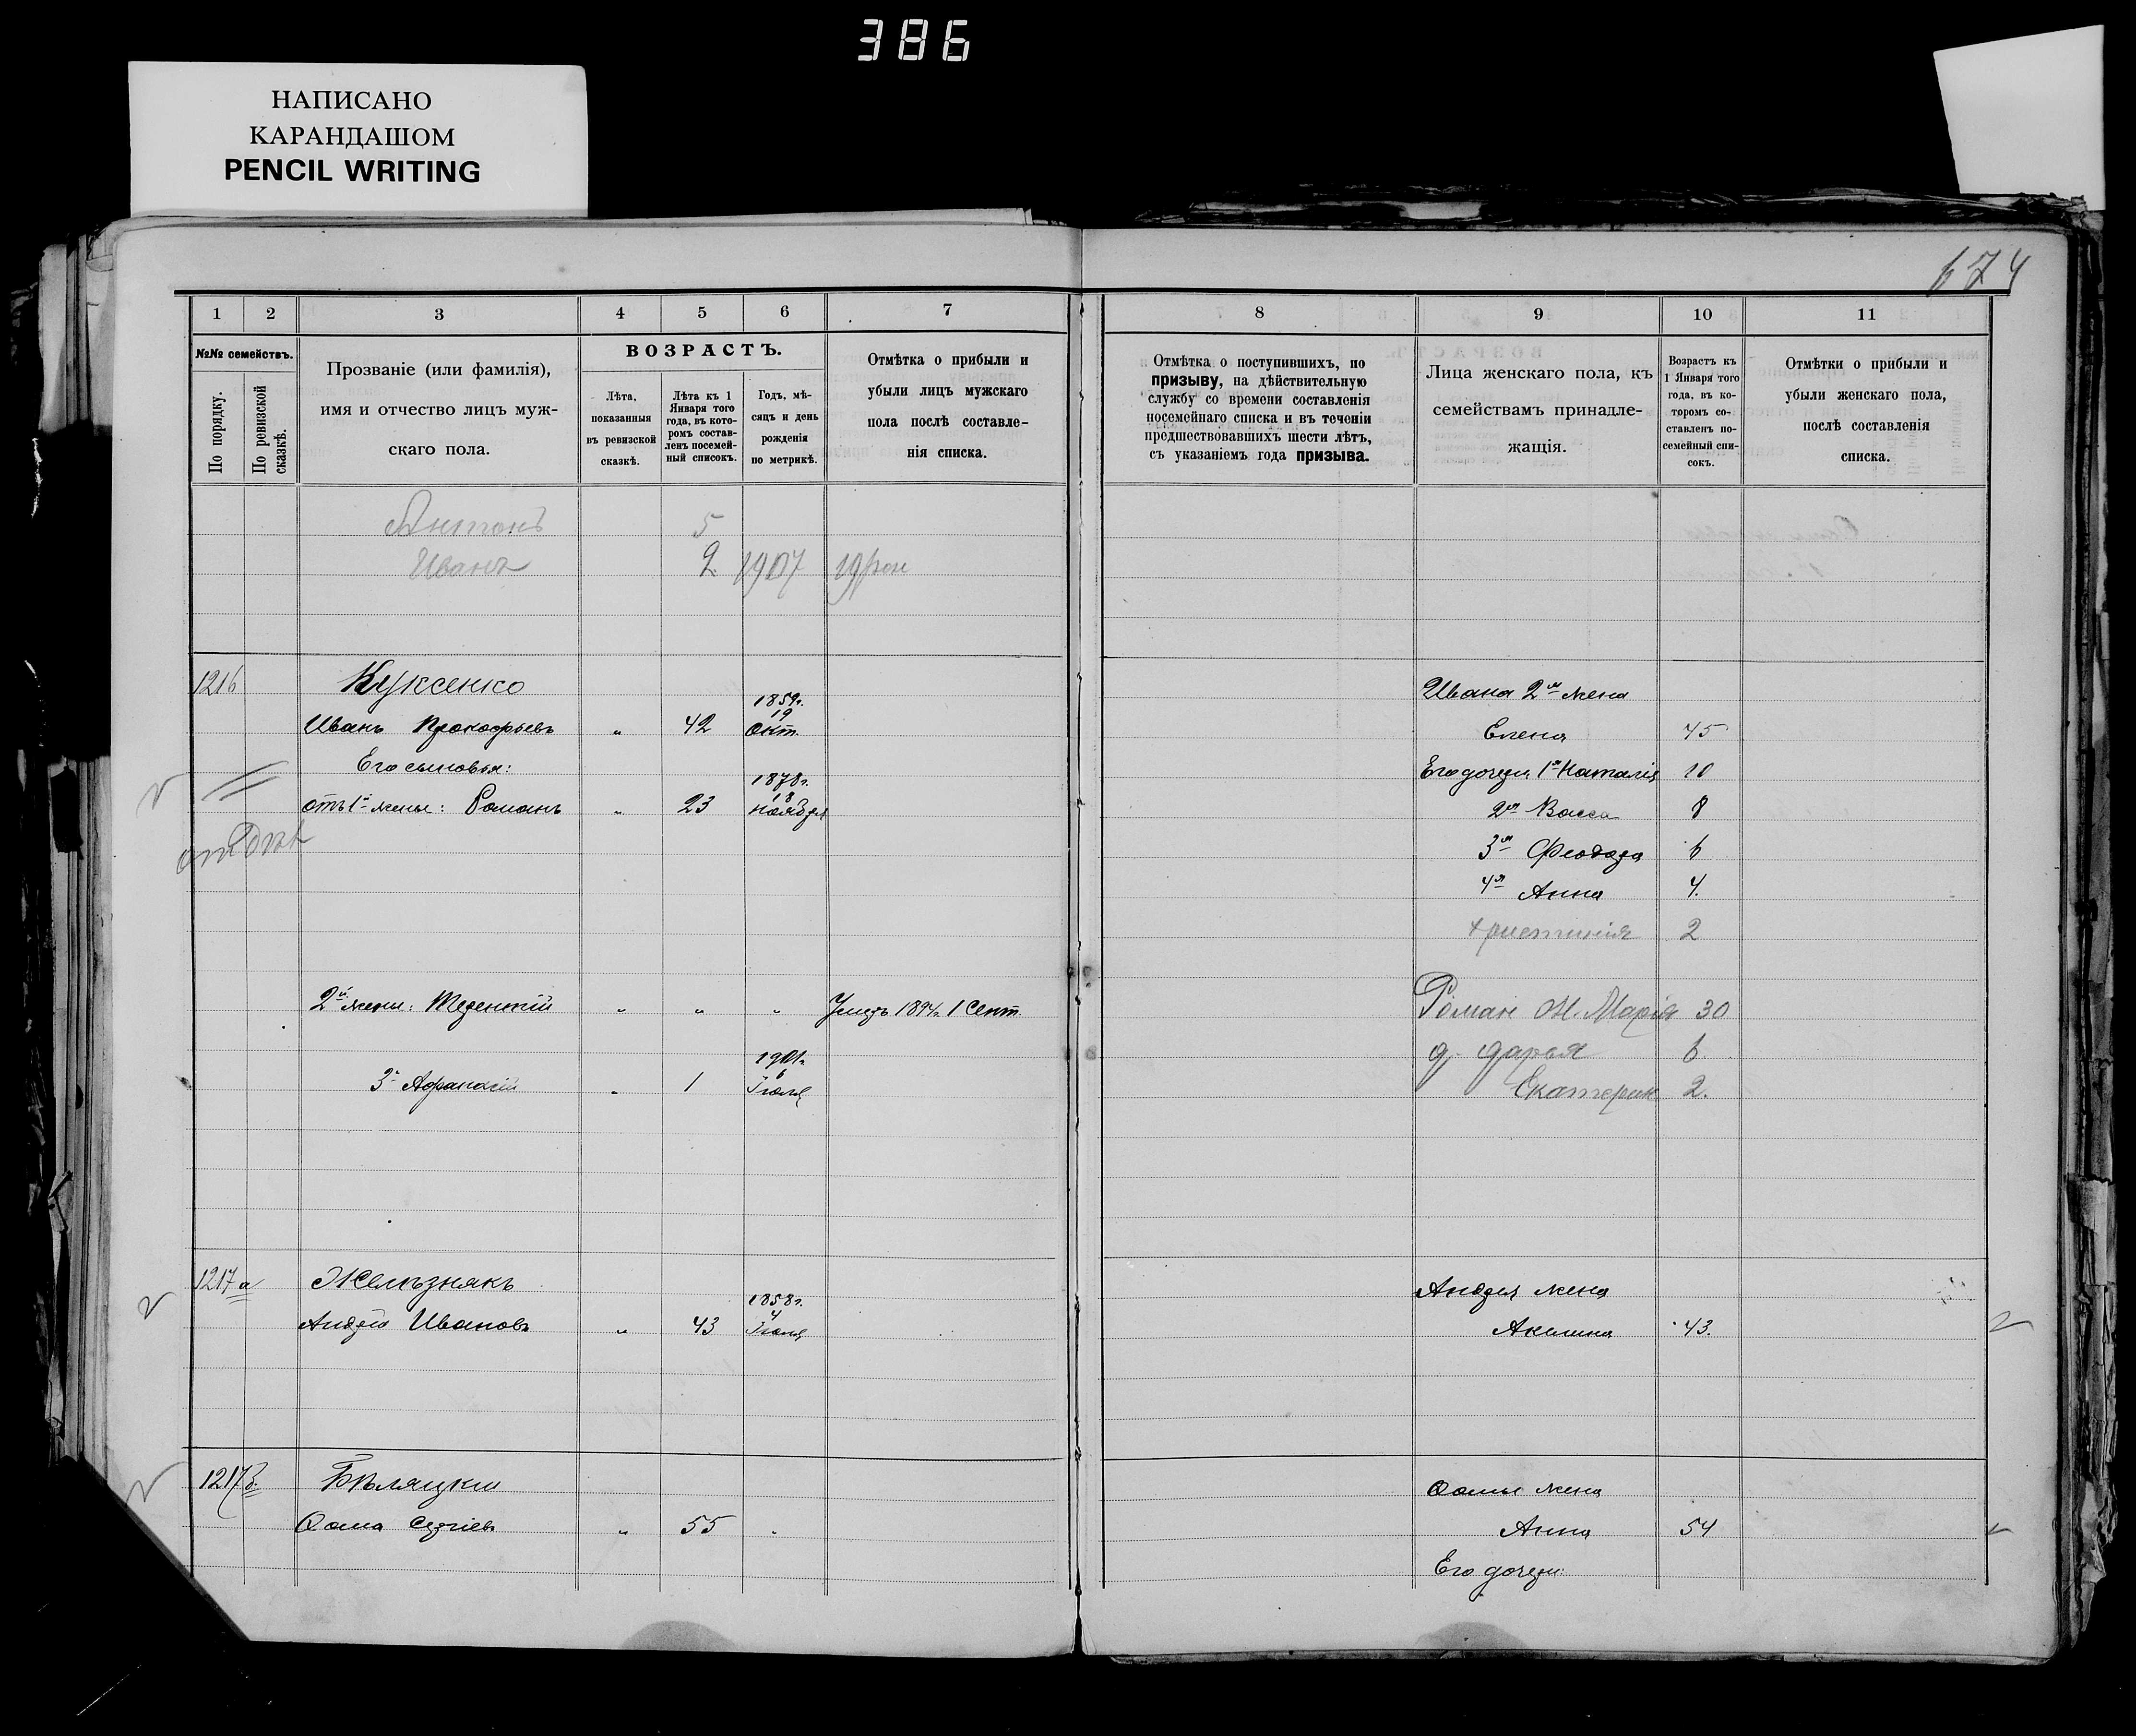 386
НАПИСАНО
КАРАНДАШОМ
PENCIL WRITING
674
1 2 3 4 5 6 7
№№ семействъ.
По порядку.
По ревизской сказкѣ.
Прозваніе (или фамилія),
имя и отчество лицъ муж-
скаго пола.
ВОЗРАСТЪ.
Лѣта,
показанныя
въ ревизской
сказкѣ.
Лѣта къ 1
Января того
года, въ кото-
ромъ состав-
ленъ посемей-
ный списокъ.
Годъ, мѣ-
сяцъ и день
рожденія
по метрикѣ.
Отмѣтка о прибыли и
убыли лицъ мужскаго
пола послѣ составле-
нія списка.
Антонъ 5
Иванъ 2 1907
1216 Куксенко
1859г.
19
Иванъ Прокофьевъ " 42 Окт.
Его сыновья:
1878г.
18
отъ 1й жены: Романъ " 23 Ноября
2й жены: Терентій " " " Умеръ 1894г. 1 Сент.
1901г.
6
3й Афанасій " 1 Іюля
1217 а Желѣзнякъ
1858г.
4
Андрей Ивановъ " 43
1217 б. Бѣляцкій
Ѳома Сергіевъ " 55 "
8 9 10 11
Отмѣтка о поступившихъ, по
призыву, на дѣйствительную
службу со времени составленія
посемейнаго списка и въ теченіи
предшествовавшихъ шести лѣтъ,
съ указаніемъ года призыва.
Лица женскаго пола, къ
семействамъ принадле-
жащія.
Возрастъ къ
1 Января того
года, въ ко-
торомъ со-
ставленъ по-
семейный спи-
сокъ.
Отмѣтки о прибыли и
убыли женскаго пола,
послѣ составленія
списка.
Ивана 2я жена
Елена 45
Его дочери 1я Наталія 10
2я Васса 8
3я Феодора 6
4я Анна 4.
Христинія 2
Роман Ж. Марія 30
д. Дарья 6.
Екатерин 2.
Андрея жена
Акилина 43.
Ѳомы жена
Анна 54
Его дочери: